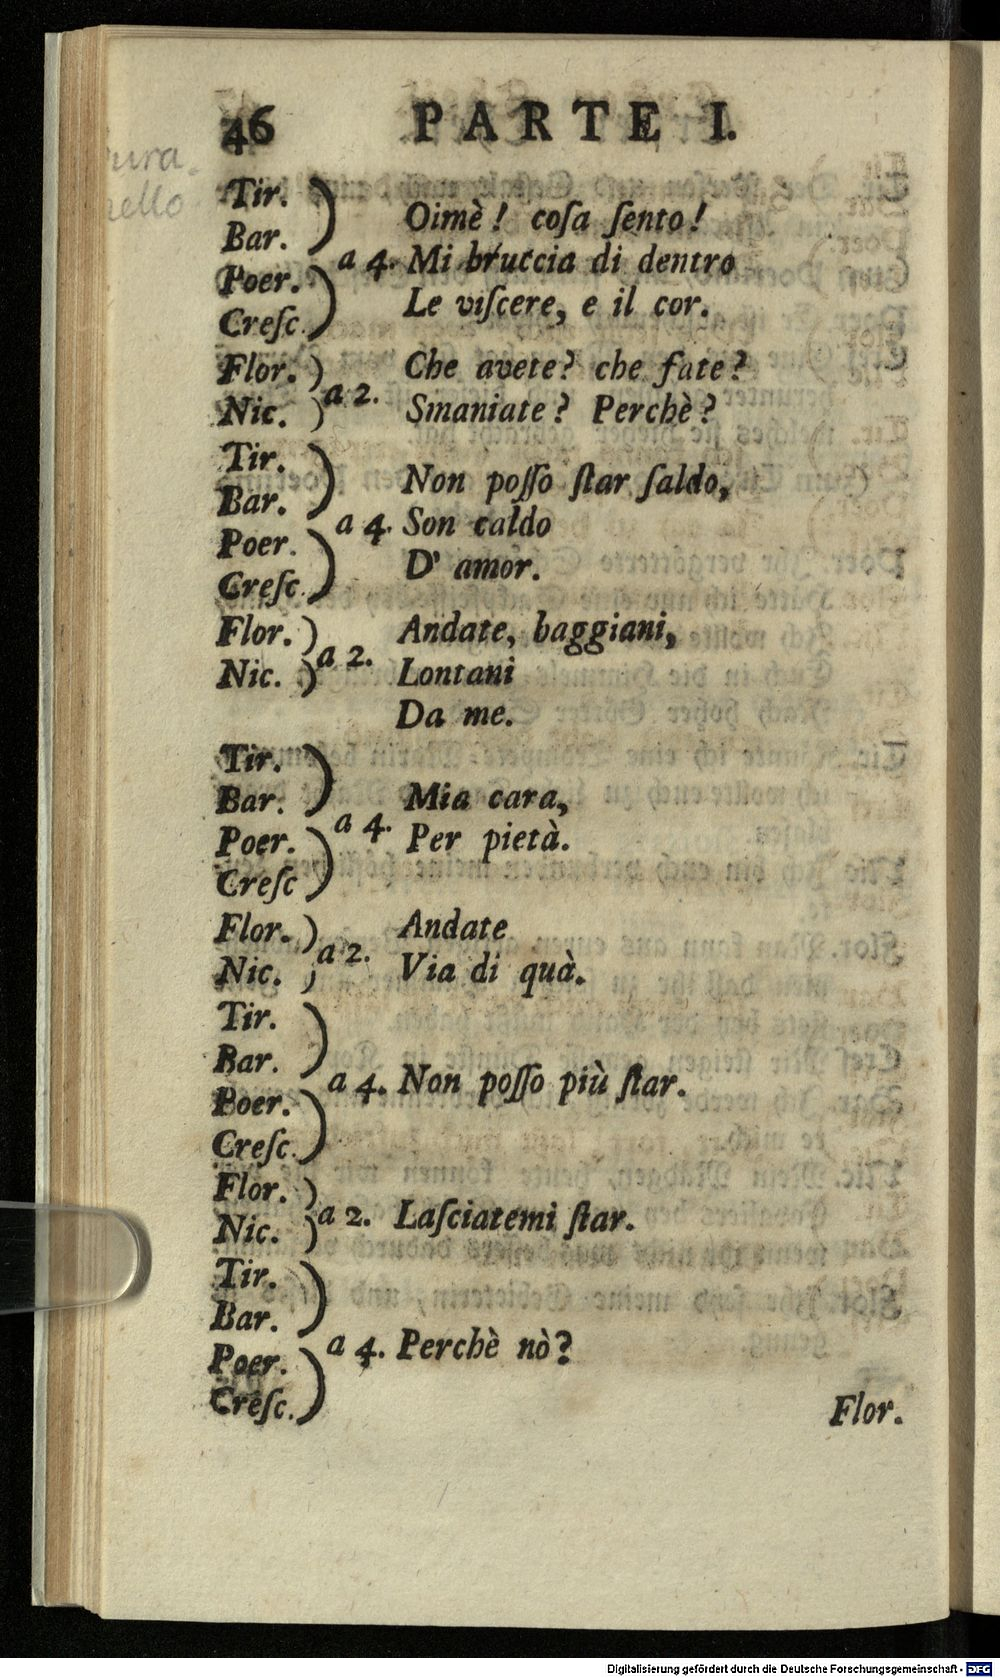 46 PARTE I.
Tir.
Bar.
Poer.
Creſc.
a 4.
Oimè! coſa ſento!
Mi bruccia di dentro
Le viſcere, e il cor.
Flor.
Nic.
a 2.
Che avete? che fate?
Smaniate? Perchè?
Tir.
Bar.
Poer.
Creſc.
a 4.
Non poſſo ſtar ſaldo,
Son caldo
D' amor.
Flor.
Nic.
a 2.
Andate, baggiani,
Lontani
Da me.
Tir.
Bar.
Poer.
Creſc
a 4.
Mia cara,
Per pietà.
Flor.
Nic.
a 2.
Andate
Via di quà.
Tir.
Bar.
Poer.
Creſc.
a 4.
Non poſſo più ſtar.
Flor.
Nic.
a 2.
Laſciatemi ſtar.
Tir.
Bar.
Poer.
Creſc.
a 4.
Perchè nò?
Flor.
Digitalisierung gefördert durch die Deutsche Forschungsgemeinschaft - DFG